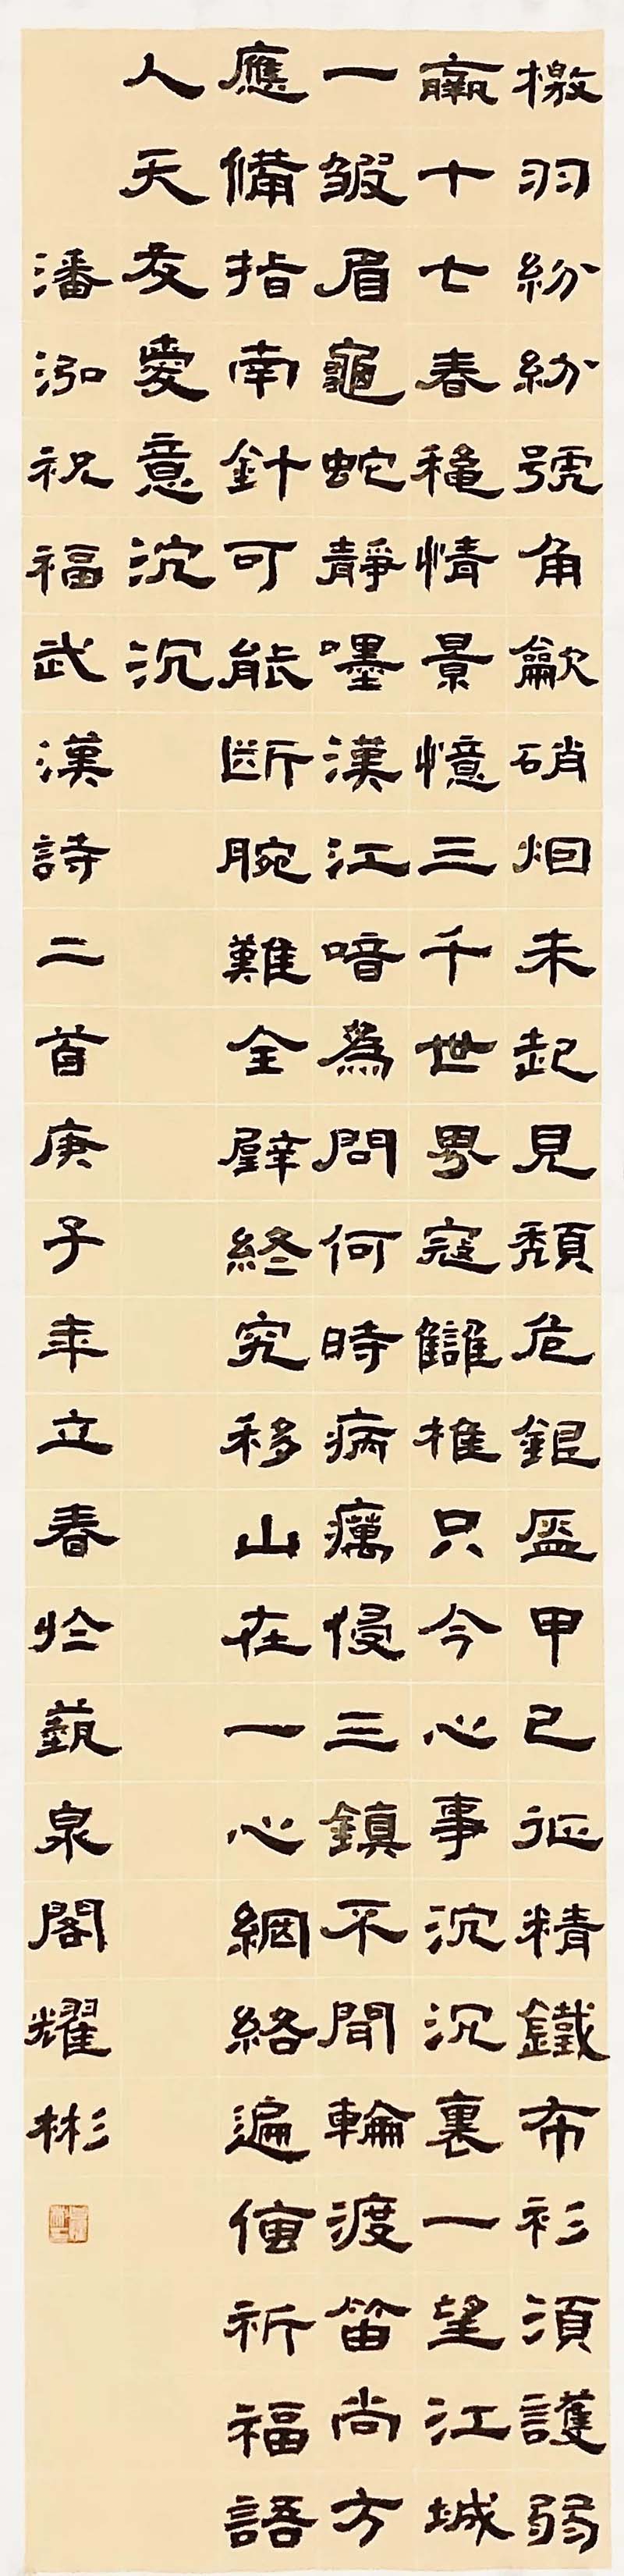 檄羽紛紛號角龡硝烟未起見頹危銀盔甲已征精鐵布衫須護弱
羸十七春穐情景憶三千世界寇讎推只今心事沉沉裏一望江城
一皺眉龜蛇靜嘿漢江喑為問何時病癘侵三鎮不聞輪渡笛尚方
應備指南針可能斷腕難全璧終究移山在一心網絡遍傳祈福語
人天友愛意沉沉
潘泓祝福武漢詩二首庚子年立春於藝泉閣耀彬